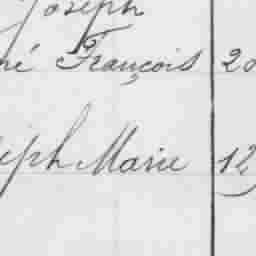 Joseph
né François 20
eph Marie 12